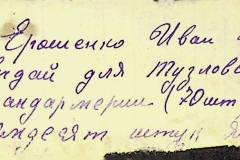 Ерошенко Иван
ндай для Тузлов
андармерии (70 шт
мдесят штук